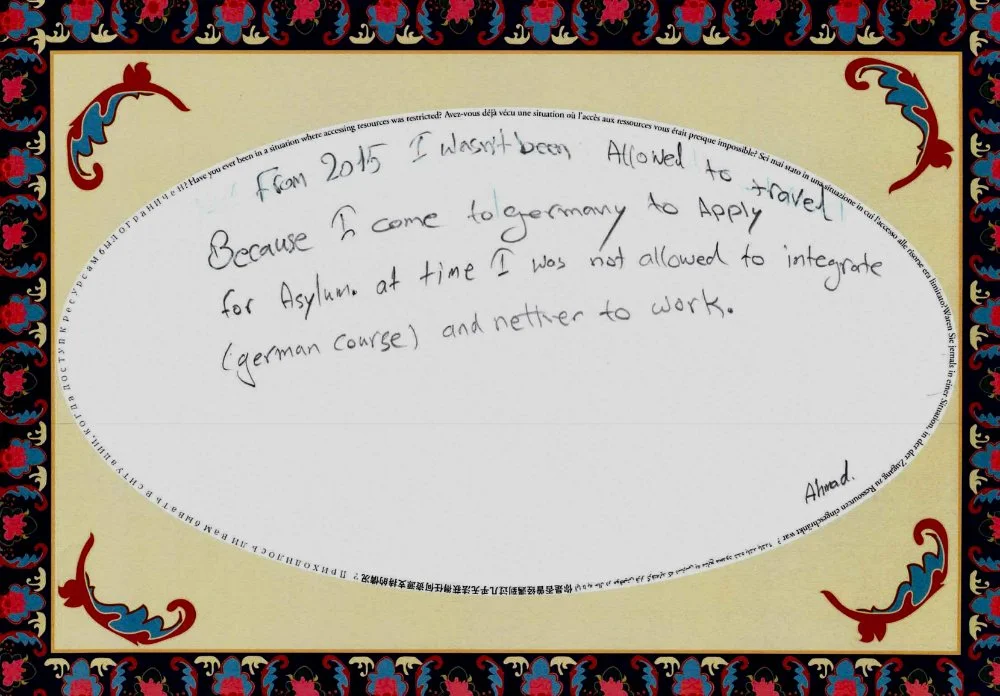 Have you ever been in a situation where accessing resources was restricted? Avez-vous déjà vécu une situation où l'accès aux ressources vous était presque impossible? Sei mai stato in una situazione in cui l'accesso alle risorse era limitato? Waren Sie jemals in einer Situation, in der der Zugang zu Ressourcen eingeschränkt war?
你是否曾经遇到过几乎无法获得任何资源支持的情况?
Приходилось ли вам бывать в ситуации, когда доступ к ресурсам был ограничен?
From 2015 I wasn't been Allowed to travel
Because I come to germany to Apply
for Asylum. at time I was not allowed to integrate
(german course) and nether to work.
Ahmad.